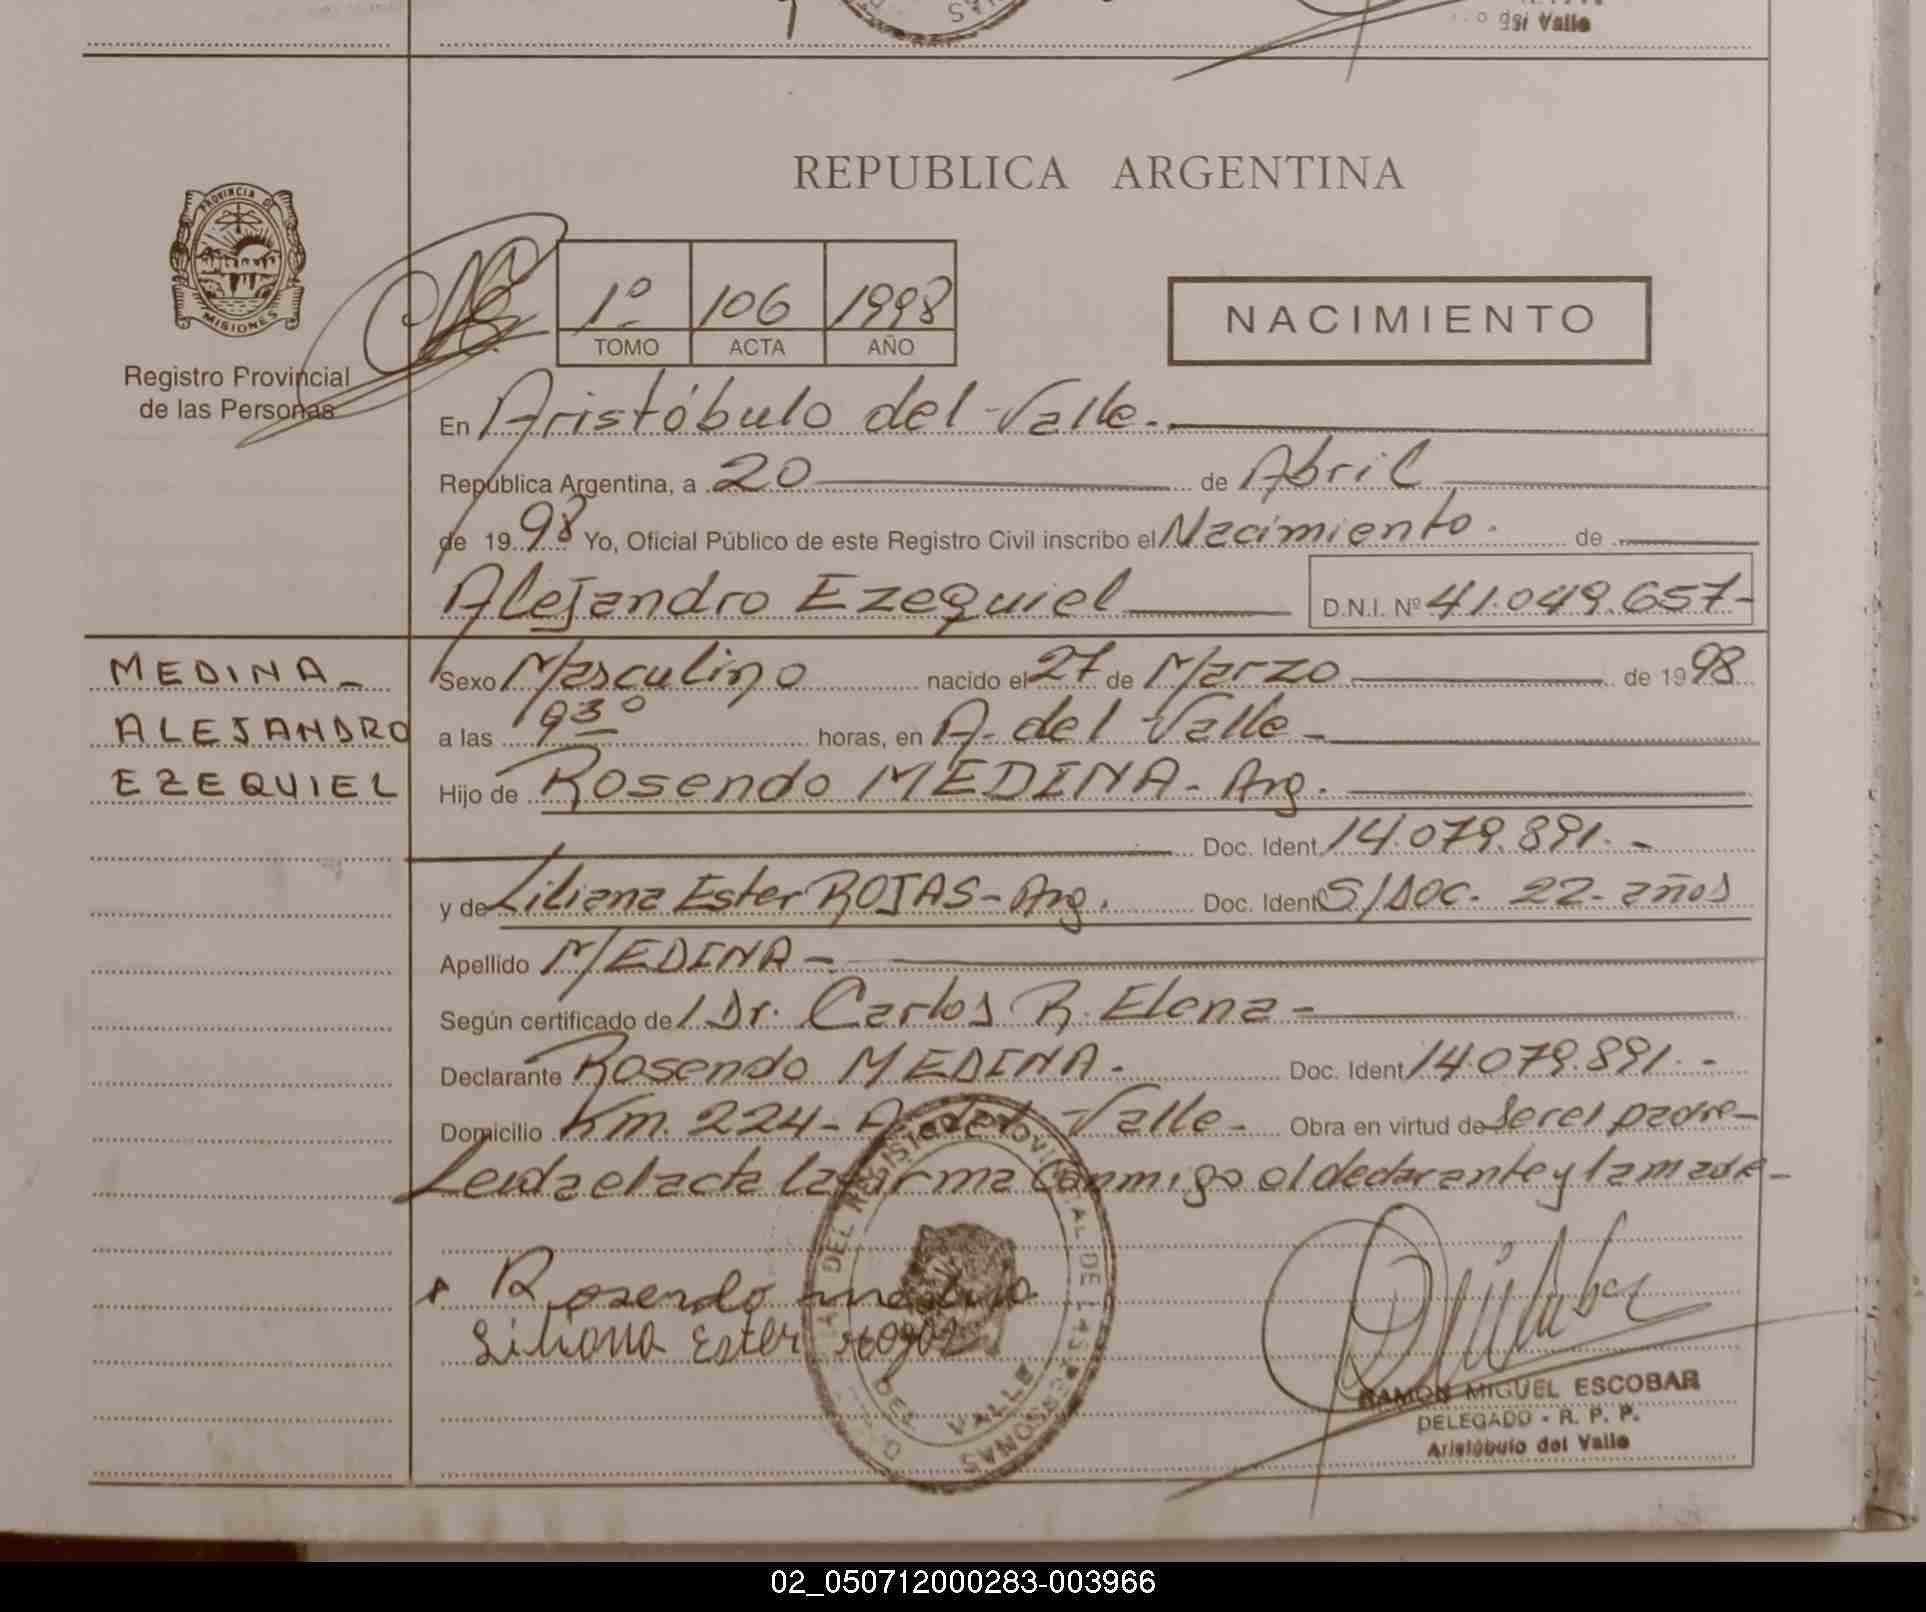 del Valle
REPUBLICA ARGENTINA
PROVINCIA DE
MISIONES
Registro Provincial
de las Personas
1º 106 1998
TOMO ACTA AÑO
NACIMIENTO
En Aristóbulo del Valle.
República Argentina, a 20 de Abril
de 1998 Yo, Oficial Público de este Registro Civil inscribo el Nacimiento. de
Alejandro Ezequiel D.N.I. Nº 41.049.657-
MEDINA-
ALEJANDRO
EZEQUIEL
Sexo Masculino nacido el 27 de Marzo de 1998
a las 9 30 horas, en A. del Valle-
Hijo de Rosendo MEDINA- Arg.
Doc. Ident. 14.079.891.-
y de Liliana Ester ROJAS- Arg. Doc. Ident. S/DOC. 22- años
Apellido MEDINA-
Según certificado de / Dr. Carlos R. Elena-
Declarante Rosendo MEDINA. Doc. Ident. 14.079.891.-
Domicilio Km. 224- A. del Valle- Obra en virtud de ser el padre-
Leida el acta la firma conmigo el declarante y la madre-
Rosendo medina
Liliana Ester
DEL REGISTRO PROVINCIAL DE LAS PERSONAS
DEL VALLE
RAMON MIGUEL ESCOBAR
DELEGADO - R. P. P.
Aristóbulo del Valle
02_050712000283-003966